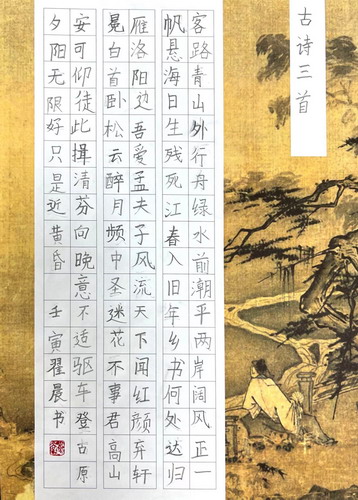 古诗三首
客路青山外行舟绿水前潮平两岸阔风正一
帆悬海日生残死江春入旧年乡书何处达归
雁洛阳边吾爱孟夫子风流天下闻红颜弃轩
冕白首卧松云醉月频中圣迷花不事君高山
安可仰徒此揖清芬向晚意不适驱车登古原
夕阳无限好只是近黄昏 壬寅翟晨书